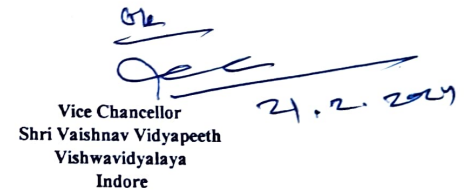 Ok
21.2.2024
Vice Chancellor
Shri Vaishnav Vidyapeeth
Vishwavidyalaya
Indore